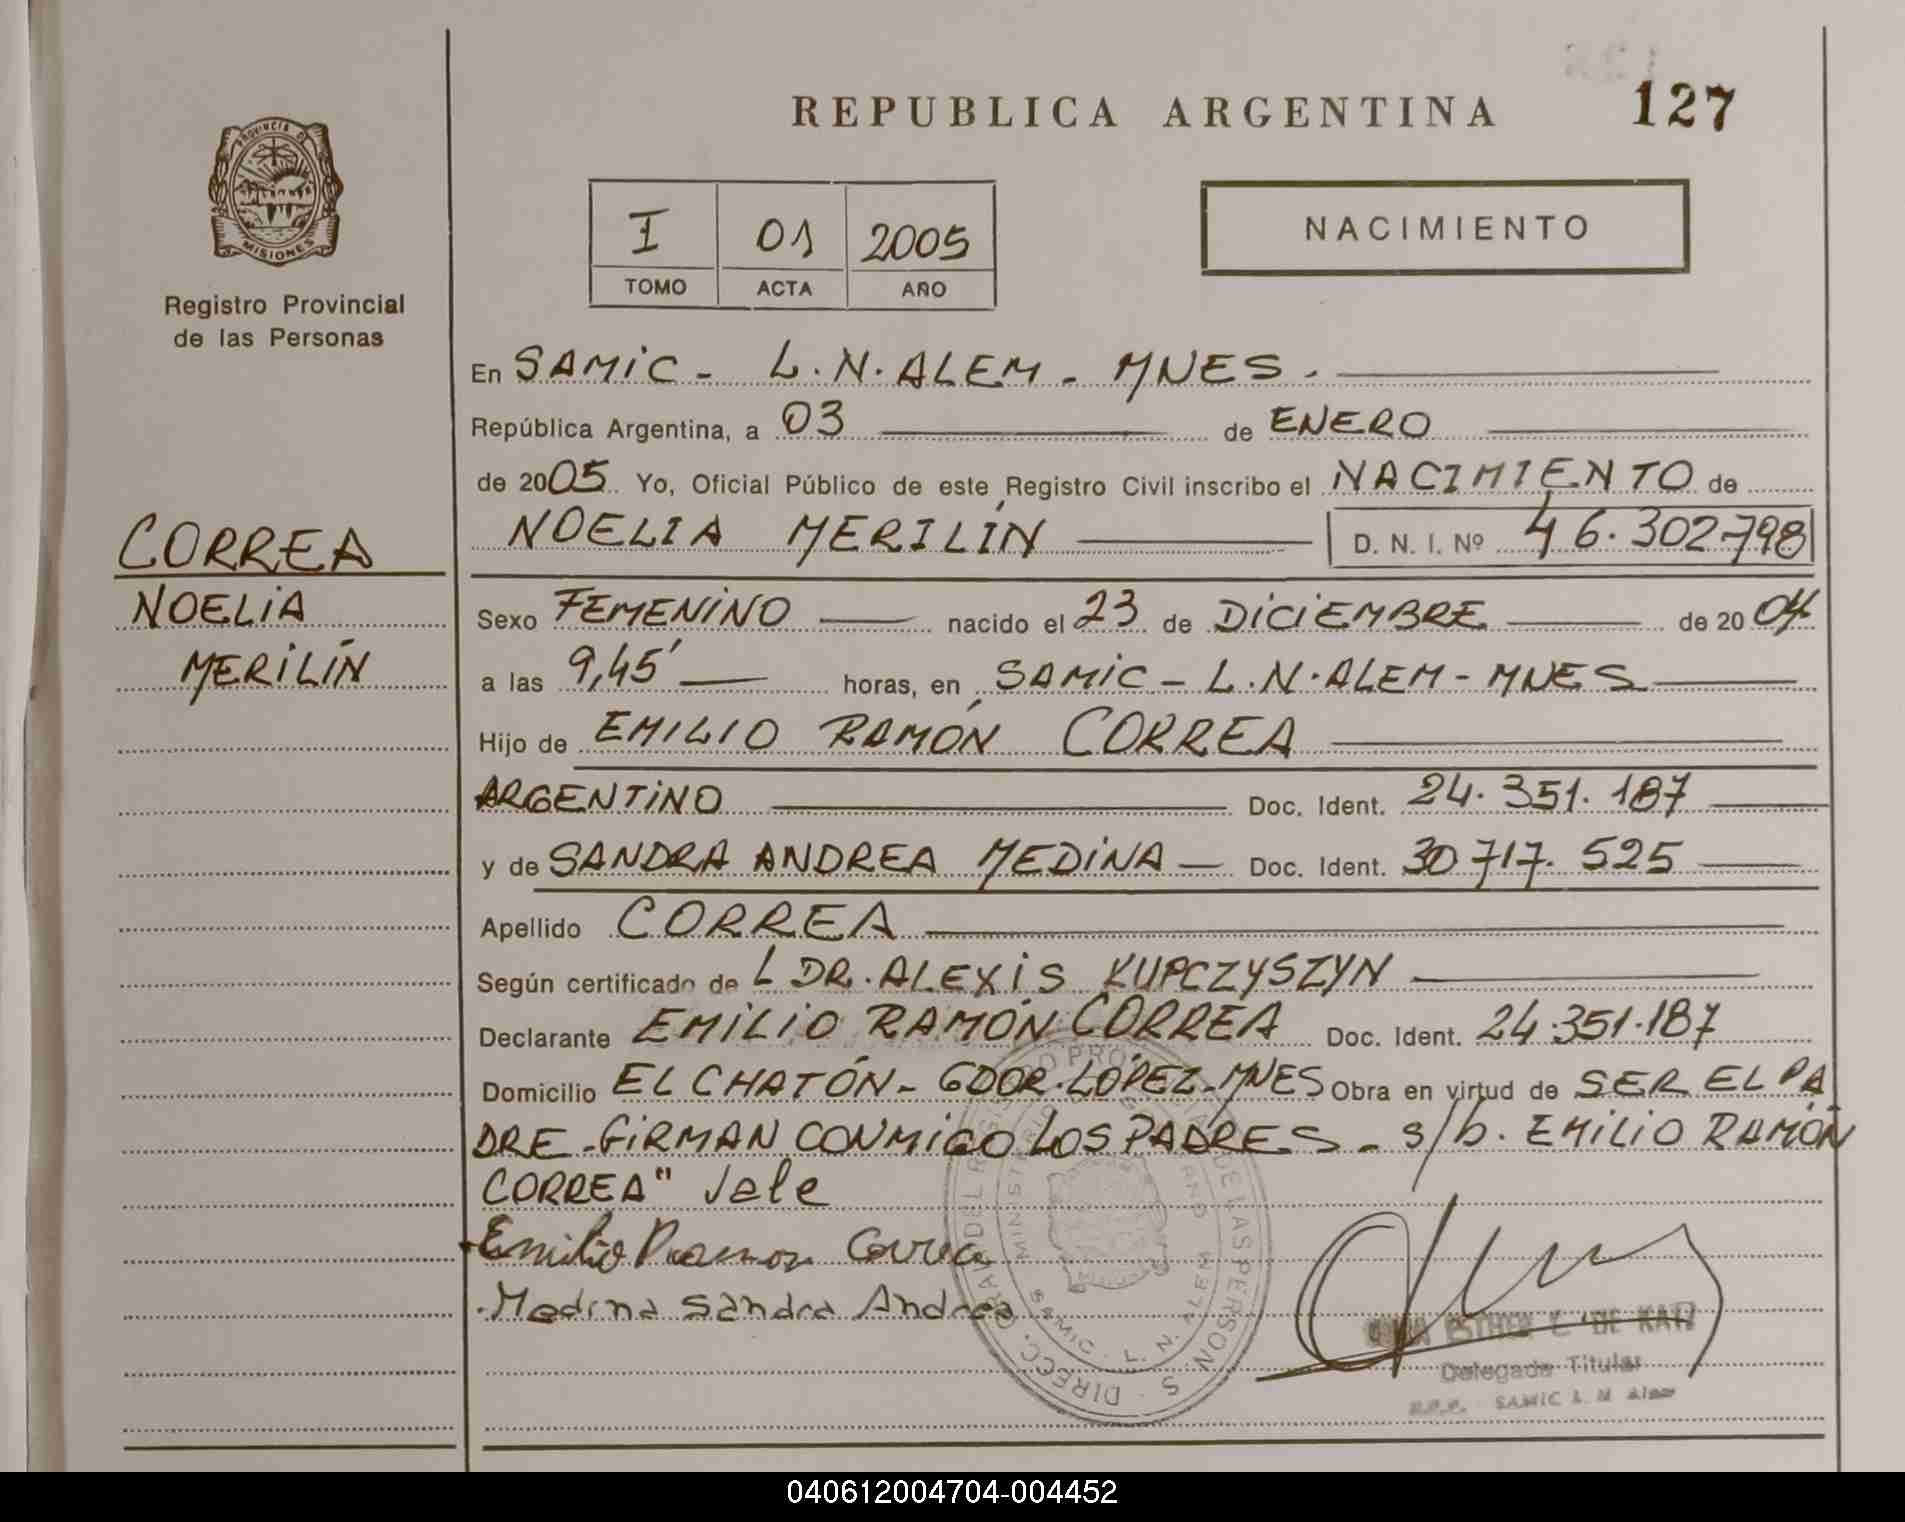 REPUBLICA ARGENTINA 127
PROVINCIA D
MISIONES
Registro Provincial
de las Personas
I 01 2005
TOMO ACTA AÑO
NACIMIENTO
En SAMIC - L.N. ALEM - MNES.
República Argentina, a 03 de ENERO
de 2005 Yo, Oficial Público de este Registro Civil inscribo el NACIMIENTO de
NOELIA MERILÍN D. N. I. Nº 46.302798
CORREA
NOELIA
MERILÍN
Sexo FEMENINO nacido el 23 de DICIEMBRE de 2004
a las 9,45' horas, en SAMIC - L.N. ALEM - MNES
Hijo de EMILIO RAMÓN CORREA
ARGENTINO Doc. Ident. 24.351.187
y de SANDRA ANDREA MEDINA Doc. Ident. 30717.525
Apellido CORREA
Según certificado de L DR. ALEXIS KUPCZYSZYN
Declarante EMILIO RAMÓN CORREA Doc. Ident. 24.351.187
Domicilio EL CHATÓN - GDOR. LÓPEZ - MNES Obra en virtud de SER EL PA
DRE - FIRMAN CONMIGO LOS PADRES - s/b. EMILIO RAMÓN
CORREA" Vale
Emilio Ramon Correa
Medina Sandra Andrea
SAMIC - L. N. ALEM
ESTHER C. DE
Delegada Titular
SAMIC L. N Alem
040612004704-004452